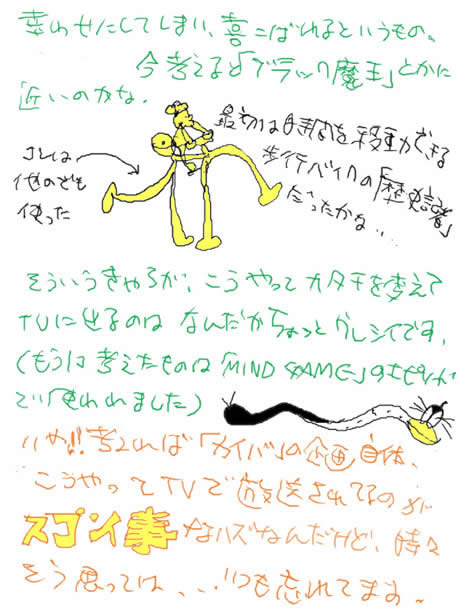 幸わせにしてしまい、喜こばれるというもの。
今考えると「ブラック魔王」とかに
近いのかな。
最初は時間を移動できる
歩行バイクの「歴史
だったかな…
コレは
他のでも
使った
そういうきゃらが、こうやってカタチを変えて
TVに出るのはなんだかちょっとウレシイです。
(もうは考えたものは「MIND GAME」の
で使われました)
いや!!考えれば「カイバ」の企画自体、
こうやってTVで放送されてるのが
スゴイ事なハズなんだけど、時々
そう思っては、、、いつも忘れてます。